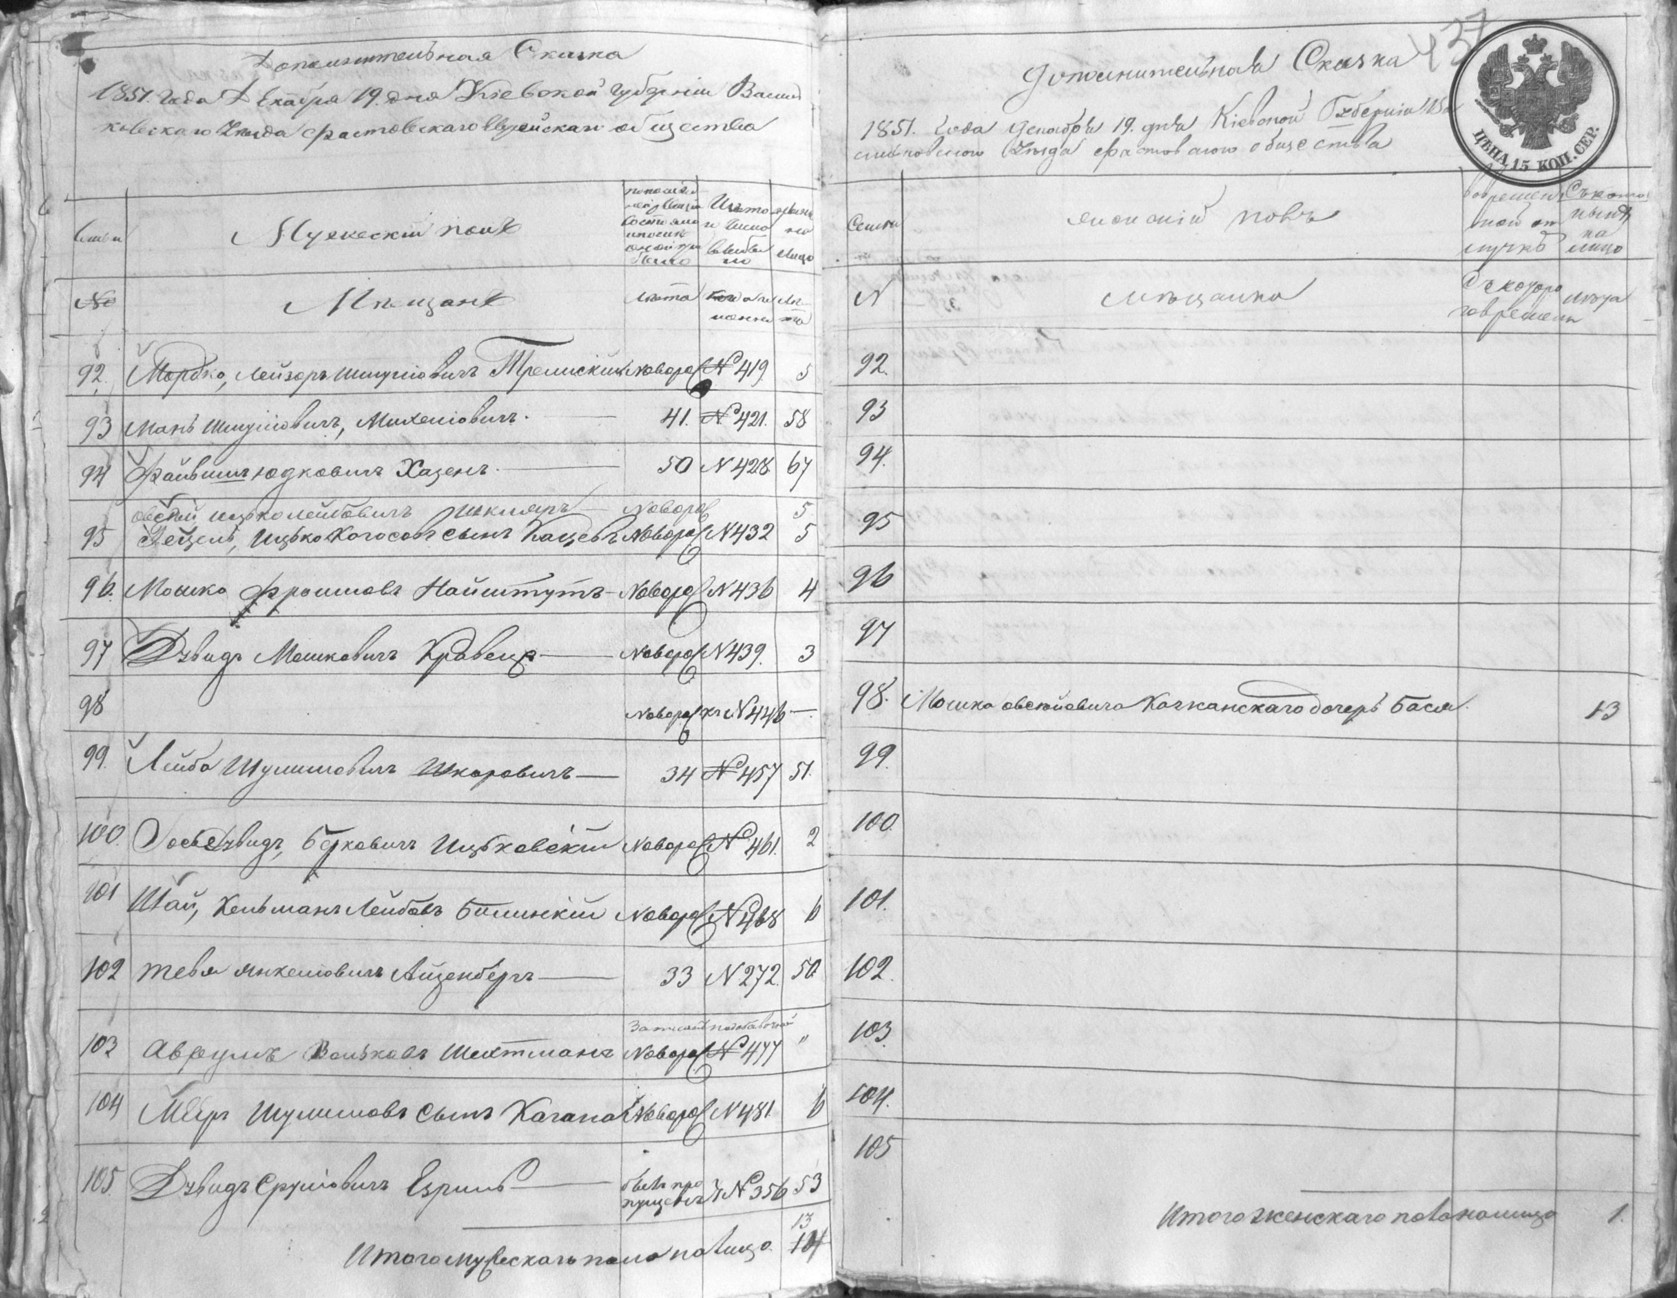 Дополнительная Сказка
1851 года Декабря 19 дня Кіевской губерніи Василь
ковскаго Уѣзда Фастовскаго Еврейскаго общества
Семьи
Мужескій полъ
№
Мѣщане
Лѣта
92. Мордко, Лейзоръ Шмулiовичъ Новорож №419 5
93 Манъ Шмулiовичъ, Михелiовичъ. 41. №421. 58
94 Файвишъ Юдковичъ Хазенъ. 50 №428 67
Ицько Лейбовичъ Шкляръ Новорож 5
95 Ицько Когосовъ сынъ Кацевъ Новорож №432 5
96. Мошко Фроимовъ Найштутъ Новорож №436 4
97 Дувидъ Мошковичъ Кравецъ Новорож №439. 3
98 Новорож №446 —
99. Лейба Шулимовичъ Шкаровичъ 34 №457 51.
100. Дувидъ, Берковичъ Ицьковскій Новорож №461. 2
101 Шай, Кельманъ Лейбовъ Билинкій Новорож №468 6
102 Тевя Янкелiовичъ Айзенбергъ 33 №272. 50
103 Аврумъ Вольковъ Шехтманъ Новорож №477 "
104 Мееръ Шулимовъ сынъ Кагана Новорож №481. 6
105. Дувидъ Срулiовичъ былъ про
пущенъ №356 53
13
Итого мужескаго пола на лицо. 14
437
Дополнительная Сказка
1851. года Декабря 19. дня Кіевской Губерніи Ва
сильковскаго Уѣзда Фастовскаго общества
ЦѢНА 15 КОП. СЕР.
Семьи
Женскій полъ
N
Мѣщанки
лѣта
92.
93
94.
95
96
97
98. Мошка Овсѣйовича Качканскаго дочерь Бася. 13
99.
100.
101.
102.
103.
104.
105
Итого женскаго пола на лицо 1.